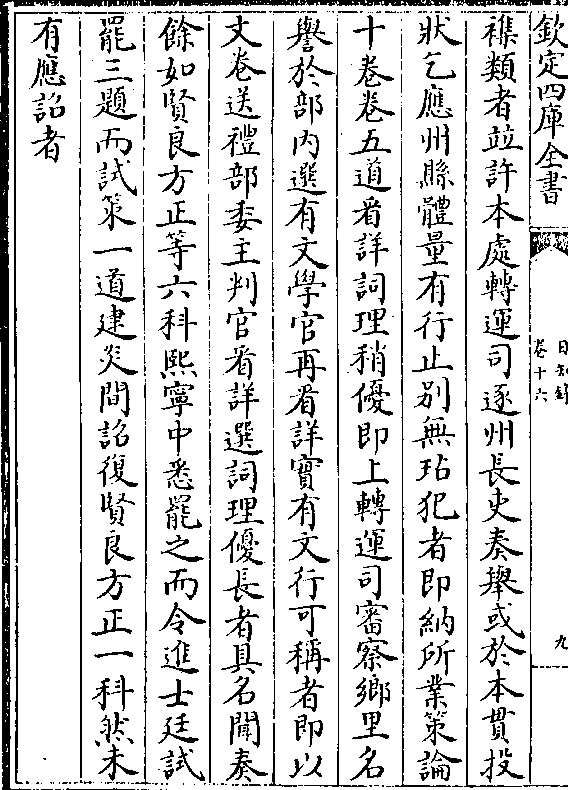 欽定四庫全書
日知錄
卷十六
九
襍類者竝許本處轉運司逐州長吏奏舉或於本貫投
狀乞應州縣體量有行止別無玷犯者即納所業策論
十卷卷五道看詳詞理稍優即上轉運司審察鄉里名
譽於部内選有文學官再看詳實有文行可稱者即以
文卷送禮部委主判官看詳選詞理優長者具名聞奏
餘如賢良方正等六科熙寧中悉罷之而令進士廷試
罷三題而試策一道建炎間詔復賢良方正一科然未
有應詔者